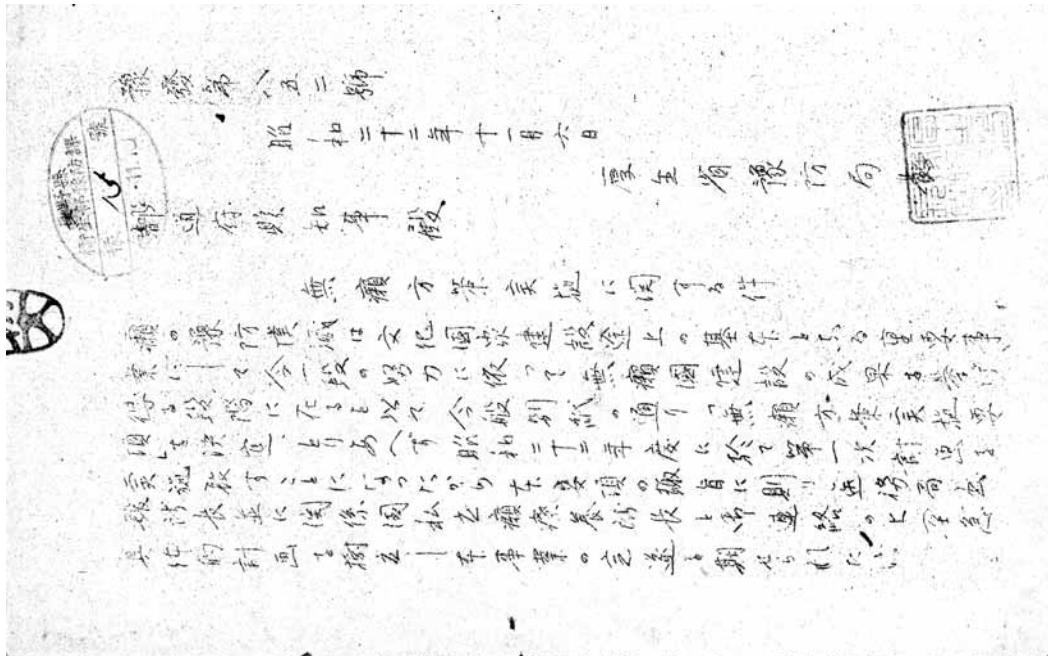 豫發第八五二號
昭和二十二年十一月六日
厚生省豫防局長
都道府縣知事殿
無癩方策実施に関する件
癩の豫防撲滅は文化國家建設途上の基本となる重要事
業にして今一段の努力に依って無癩國建設の成果を挙げ
得る段階に在るを以て今般別紙の通り「無癩方策実施要
項」を決定、とりあへず昭和二十二年度に於て第一次計画を
実施致すことになったから本要項の趣旨に則り
療養所長並に関係國私立癩療養所長と御連絡の上至急
具体的計画を樹立し本事業の完遂を期せられたい。